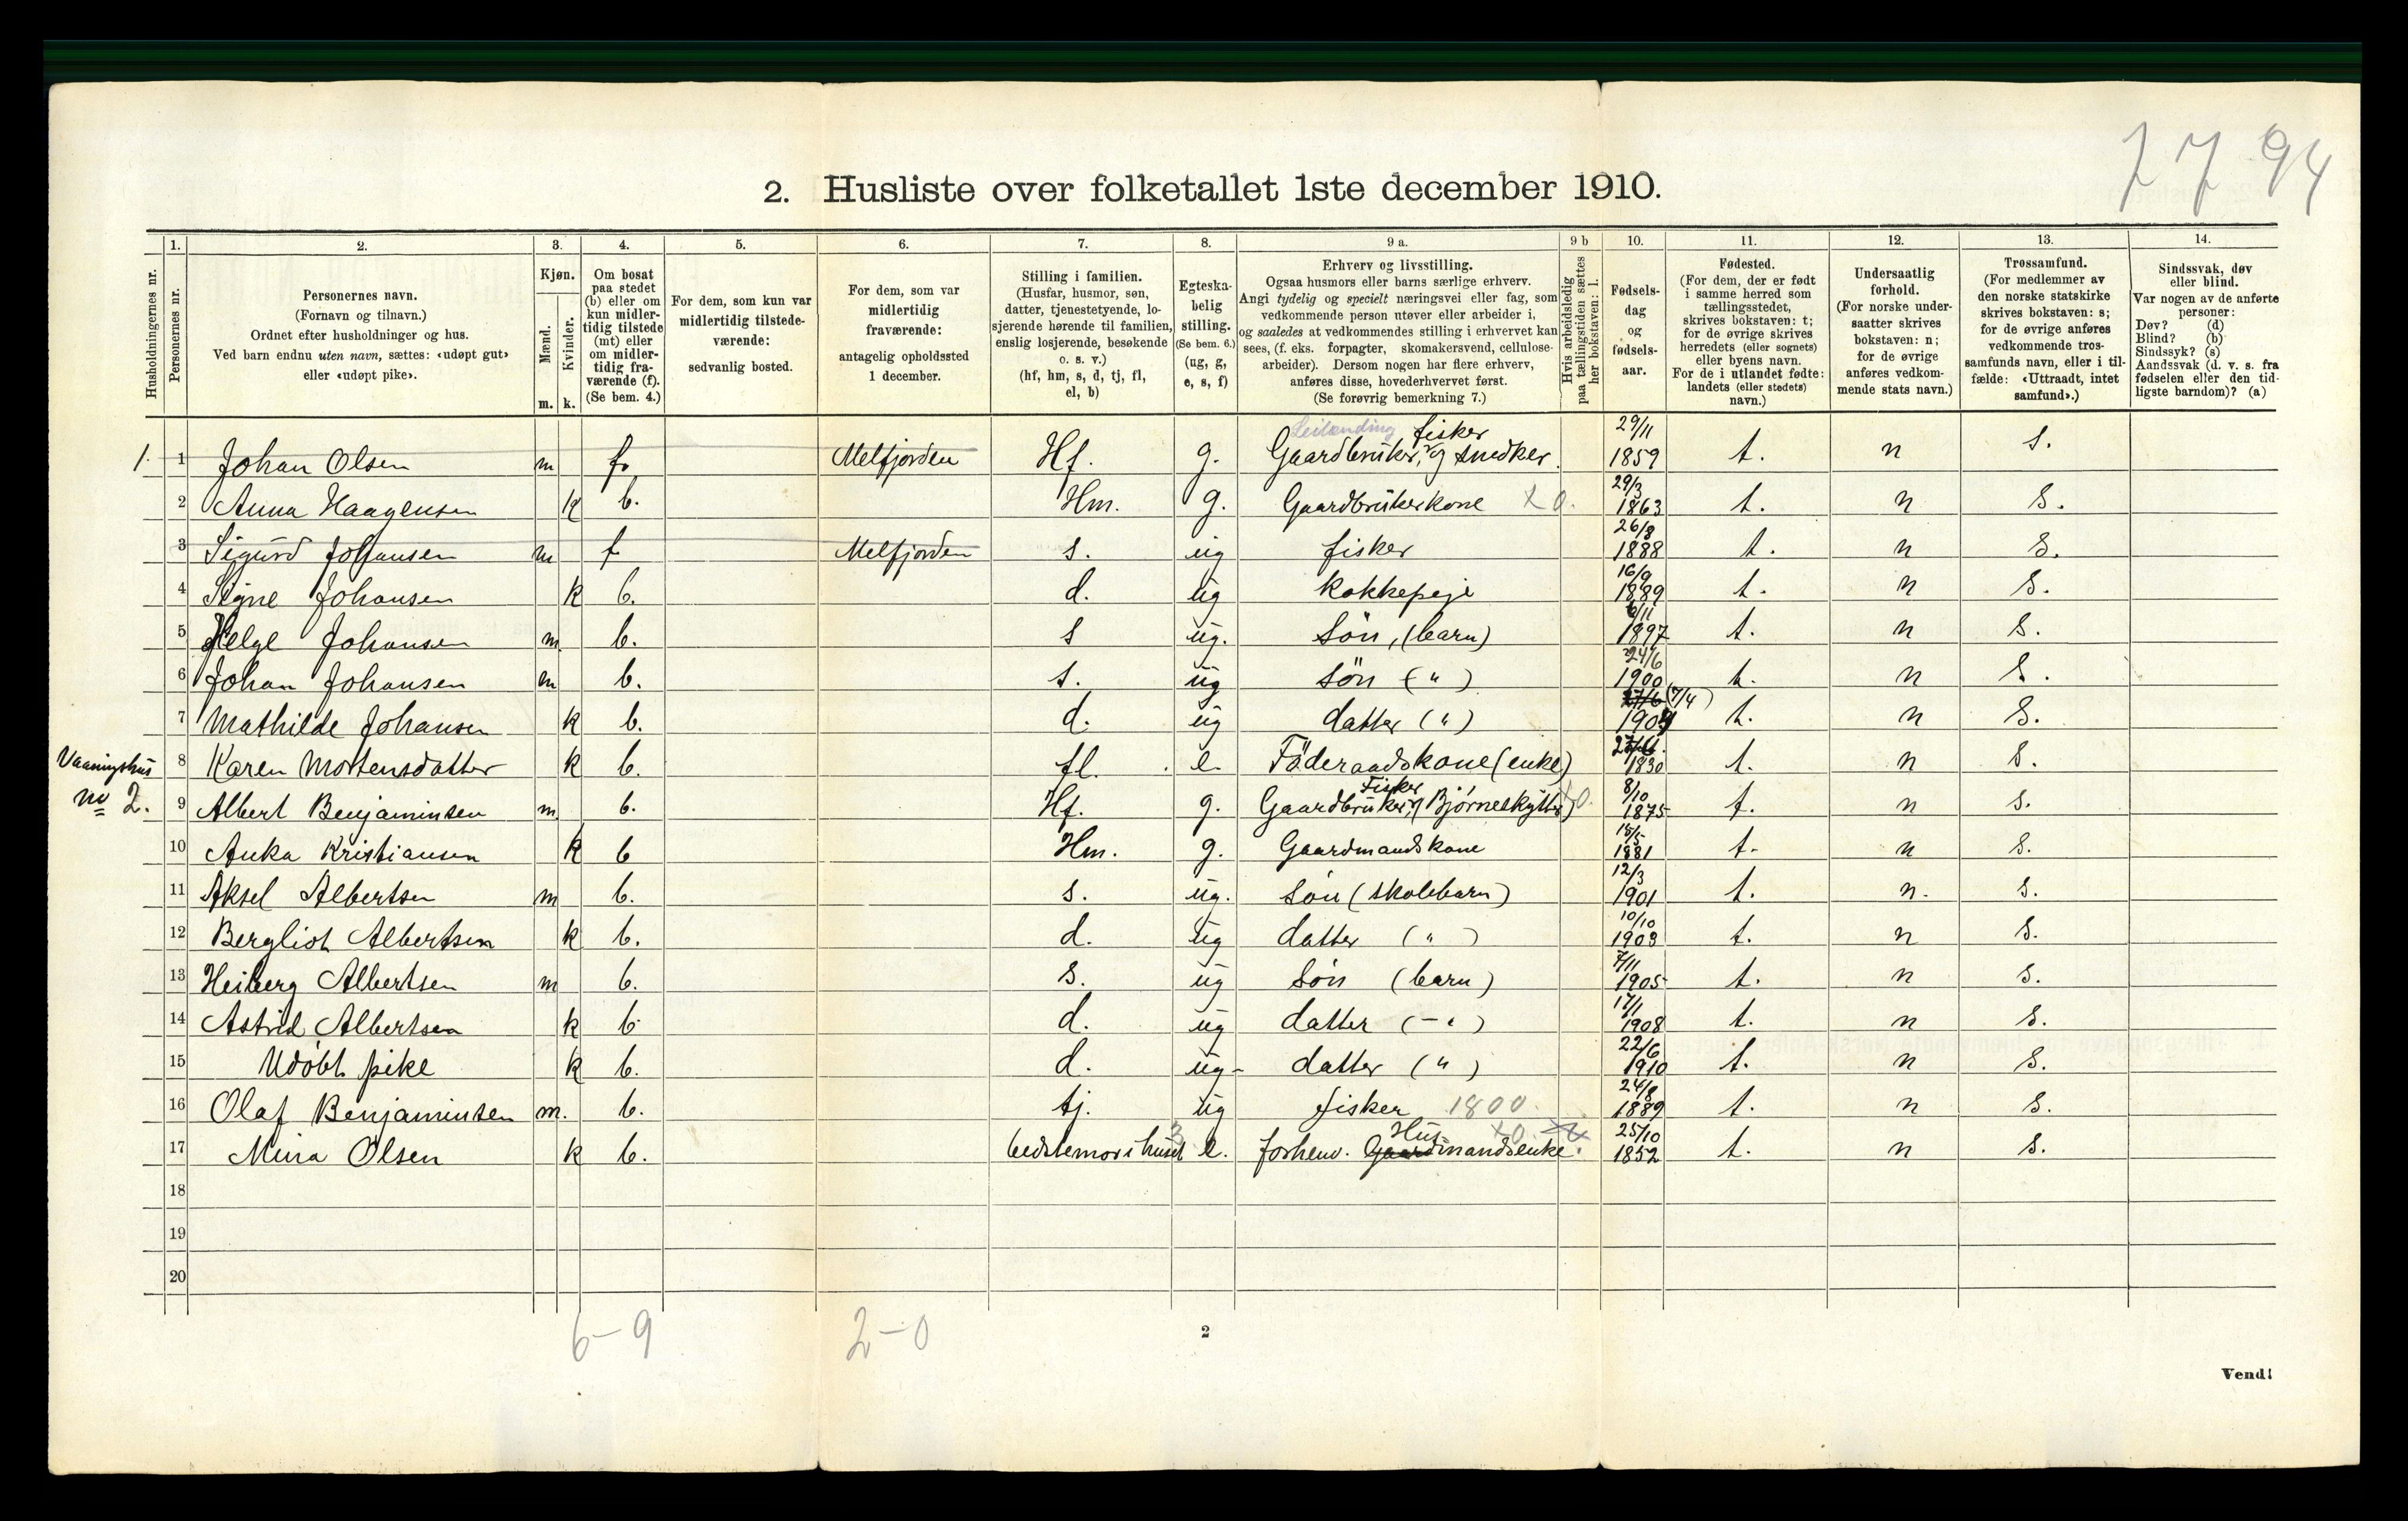 7 7 94
2. Husliste over folketallet 1ste december 1910.
1. 2. 3. 4. 5. 6. 7. 8. 9 a. 9 b 10. 11. 12. 13. 14.
Husholdningernes nr.
Personernes nr.
Personernes navn.
(Fornavn og tilnavn.)
Ordnet efter husholdninger og hus.
Ved barn endnu uten navn, sættes: «udøpt gut»
eller «udøpt pike».
Kjøn.
Mænd.
Kvinder.
m. k.
Om bosat
paa stedet
(b) eller om
kun midler-
tidig tilstede
(mt) eller
om midler-
tidig fra-
værende (f).
(Se bem. 4.)
For dem, som kun var
midlertidig tilstede-
værende:
sedvanlig bosted.
For dem, som var
midlertidig
fraværende:
antagelig opholdssted
1 december.
Stilling i familien.
(Husfar, husmor, søn,
datter, tjenestetyende, lo-
sjerende hørende til familien,
enslig losjerende, besøkende
o. s. v.)
(hf, hm, s, d, tj, fl,
el, b)
Egteska-
belig
stilling.
(Se bem. 6.)
(ug, g,
e, s, f)
Erhverv og livsstilling.
Ogsaa husmors eller barns særlige erhverv.
Angi tydelig og specielt næringsvei eller fag, som
vedkommende person utøver eller arbeider i,
og saaledes at vedkommendes stilling i erhvervet kan
sees, (f. eks. forpagter, skomakersvend, cellulose-
arbeider). Dersom nogen har flere erhverv,
anføres disse, hovederhvervet først.
(Se forøvrig bemerkning 7.)
Hvis arbeidsledig
paa tællingstiden sættes
her bokstaven: l.
Fødsels-
dag
og
fødsels-
aar.
Fødested.
(For dem, der er født
i samme herred som
tællingsstedet,
skrives bokstaven: t;
for de øvrige skrives
herredets (eller sognets)
eller byens navn.
For de i utlandet fødte:
landets (eller stedets)
navn.)
Undersaatlig
forhold.
(For norske under-
saatter skrives
bokstaven: n;
for de øvrige
anføres vedkom-
mende stats navn.)
Trossamfund.
(For medlemmer av
den norske statskirke
skrives bokstaven: s;
for de øvrige anføres
vedkommende tros-
samfunds navn, eller i til-
fælde: «Uttraadt, intet
samfund».)
Sindssvak, døv
eller blind.
Var nogen av de anførte
personer:
Døv? (d)
Blind? (b)
Sindssyk? (s)
Aandssvak (d. v. s. fra
fødselen eller den tid-
ligste barndom)? (a)
Leilænding fisker 29/11
1. 1 Johan Olsen m f. Melfjorden Hf. g. Gaardbruker, og snedker. 1859 t. n s.
29/3
2 Anna Haagensen k b. Hm. g. Gaardbrukerkone x 0. 1863 t. n s.
26/8
3 Sigurd Johansen m f Melfjorden s. ug fisker 1888 t. n s.
16/9
4 Signe Johansen k b. d. ug kokkepige 1889 t. n s.
6/11
5 Helge Johansen m. b. s ug. Søn, (barn) 1897 t. n s.
24/6
6 Johan Johansen m b. s. ug Søn ( " ) 1900 t. n s.
27/6 (7/4)
7 Mathilde Johansen k b. d. ug datter ( " ) 1904 t. n s.
Vaaningshus
8 Karen Mortensdatter k b. fl. e Föderaadskone (enke) 1830 t. n s.
Fisker 8/10
no 2. 9 Albert Benjaminsen m b. Hf. g. Gaardbruker, og Bjørneskytter x0. 1875 t. n s.
15/5
10 Anka Kristiansen k b Hm. g. Gaardmandskone 1881 t. n s.
12/3
11 Aksel Albertsen m b. s. ug. Søn (skolebarn) 1901 t. n. s.
10/10
12 Bergliot Albertsen k b. d. ug datter ( " ) 1903 t. n s.
7/11
13 Heiberg Albertsen m b. s. ug Søn (barn) 1905 t. n s.
17/1
14 Astrid Albertsen k b d. ug datter (-") 1908 t. n s.
22/6
15 Udöbt pike k b. d. ug- datter ( " ) 1910 t. n s.
24/8
16 Olaf Benjaminsen m. b. tj. ug fisker 1800 1889 t. n s.
Hus x0 25/10
17 Mina Olsen k b. bedstemor i huset e. forhenv. Gaardmandsenke. 1852 t. n s.
18
19
20
6-9 2-0
2
Vend!